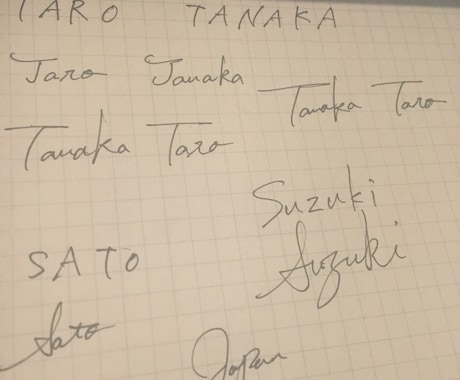 TARO TANAKA
Taro Tanaka
Tanaka Taro
Tanaka Taro
Suzuki
Suzuki
SATO
Sato
Japan